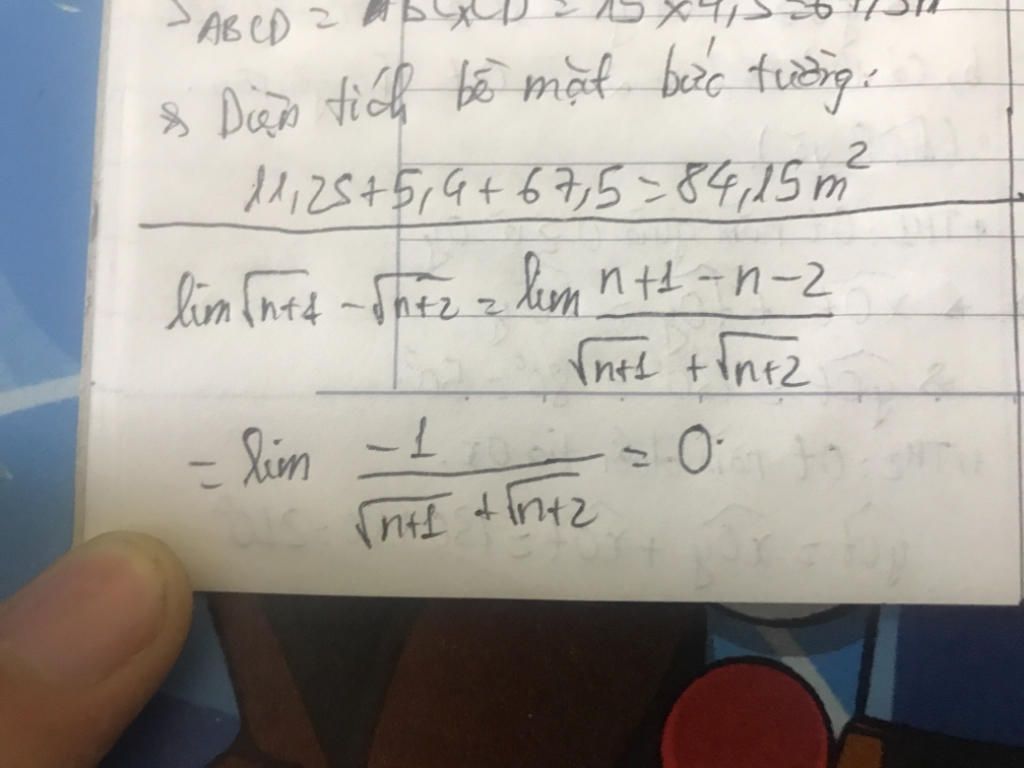 S ABCD = BC x CD = 15 x 4,5 = 67,5 m
* Diện tích bề mặt bức tường:
11,25 + 5,4 + 67,5 = 84,15 m²
lim √n+1 - √n+2 = lim (n+1 - n - 2) / (√n+1 + √n+2)
= lim -1 / (√n+1 + √n+2) = 0